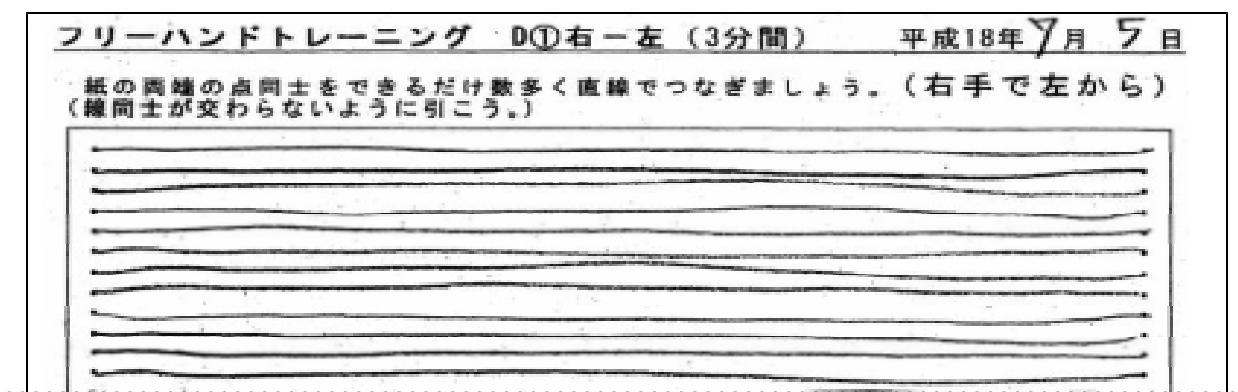 フリーハンドトレーニング D①右ー左（3分間） 平成18年9月5日
紙の両端の点同士をできるだけ数多く直線でつなぎましょう。（右手で左から）
（線同士が交わらないように引こう。）